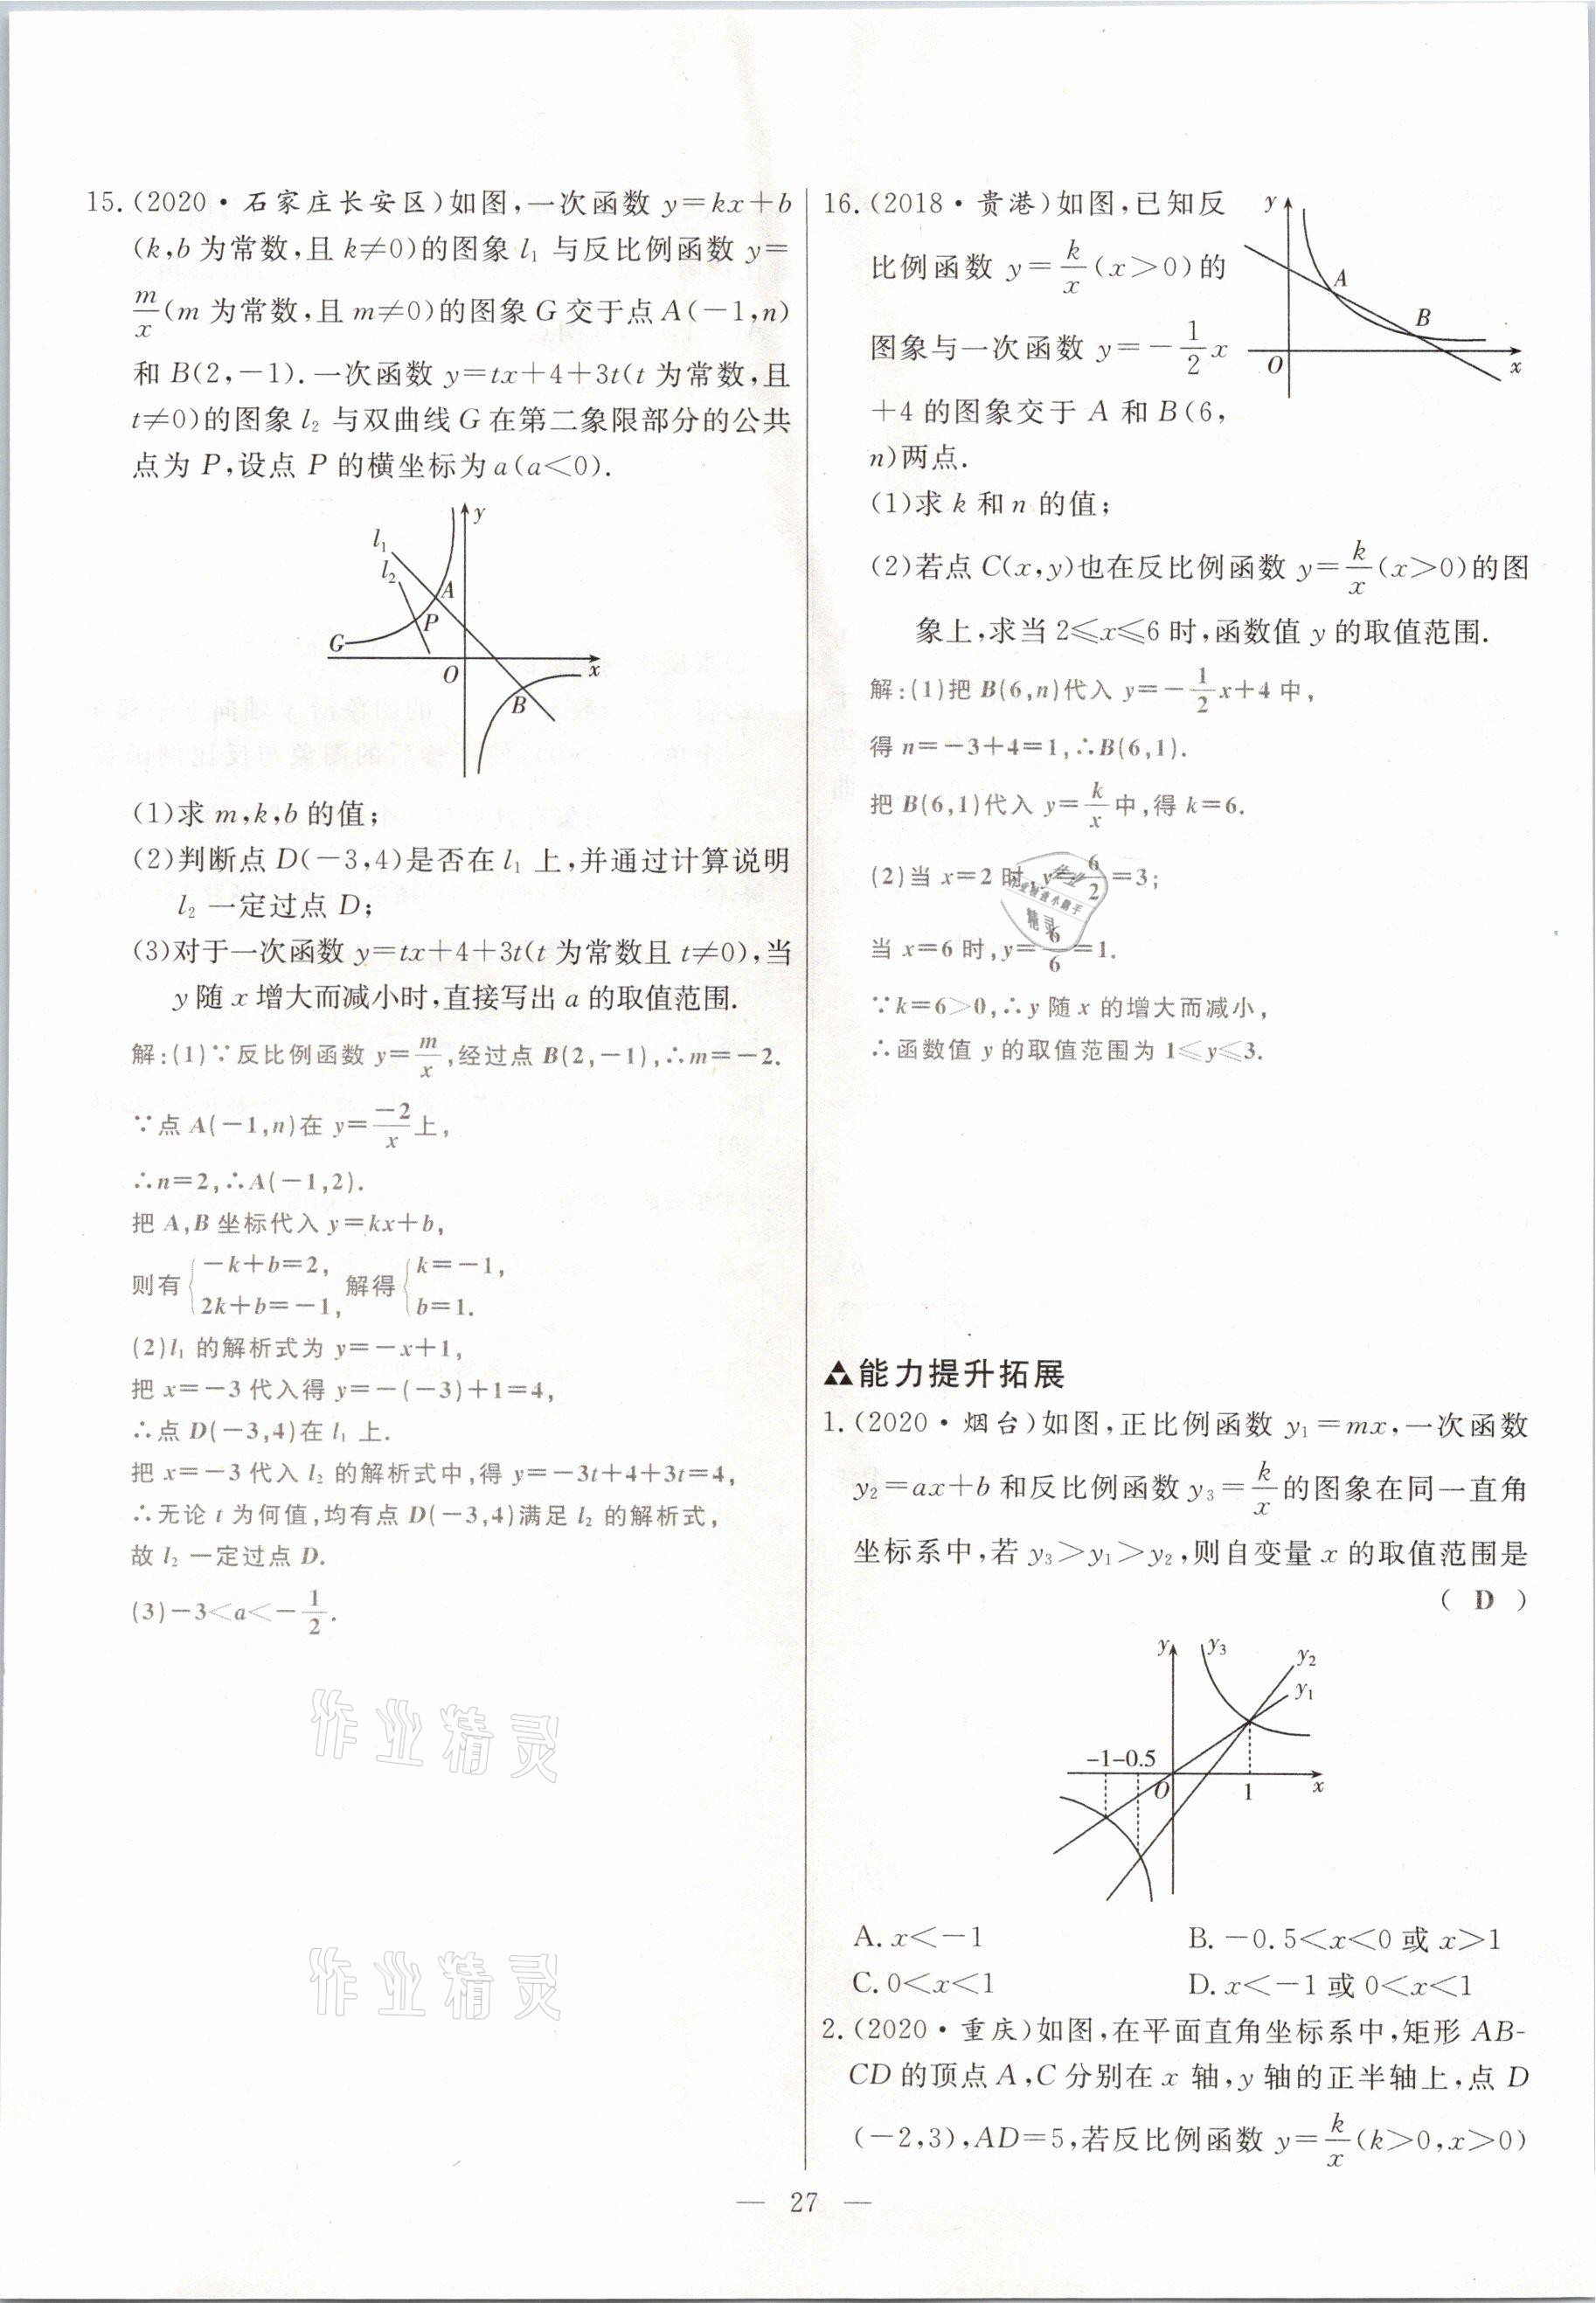 15.(2020·石家庄长安区)如图,一次函数 y=kx+b
(k,b 为常数,且 k≠0)的图象 l₁ 与反比例函数 y=
m/x(m 为常数,且 m≠0)的图象 G 交于点 A(-1,n)
和 B(2,-1).一次函数 y=tx+4+3t(t 为常数,且
t≠0)的图象 l₂ 与双曲线 G 在第二象限部分的公共
点为 P,设点 P 的横坐标为 a(a<0).
y
l₁
l₂
A
P
G
O
x
B
(1)求 m,k,b 的值;
(2)判断点 D(-3,4)是否在 l₁ 上,并通过计算说明
l₂ 一定过点 D;
(3)对于一次函数 y=tx+4+3t(t 为常数且 t≠0),当
y 随 x 增大而减小时,直接写出 a 的取值范围.
解:(1)∵反比例函数 y=m/x,经过点 B(2,-1),∴m=-2.
∵点 A(-1,n)在 y=-2/x上,
∴n=2,∴A(-1,2).
把 A,B 坐标代入 y=kx+b,
则有{-k+b=2, 2k+b=-1, 解得{k=-1, b=1.
(2)l₁ 的解析式为 y=-x+1,
把 x=-3 代入得 y=-(-3)+1=4,
∴点 D(-3,4)在 l₁ 上.
把 x=-3 代入 l₂ 的解析式中,得 y=-3t+4+3t=4,
∴无论 t 为何值,均有点 D(-3,4)满足 l₂ 的解析式,
故 l₂ 一定过点 D.
(3)-3<a<-1/2.
作业精灵
作业精灵
16.(2018·贵港)如图,已知反
比例函数 y=k/x(x>0)的
图象与一次函数 y=-1/2x
+4 的图象交于 A 和 B(6,
n)两点.
y
A
B
O
x
(1)求 k 和 n 的值;
(2)若点 C(x,y)也在反比例函数 y=k/x(x>0)的图
象上,求当 2≤x≤6 时,函数值 y 的取值范围.
解:(1)把 B(6,n)代入 y=-1/2x+4 中,
得 n=-3+4=1,∴B(6,1).
把 B(6,1)代入 y=k/x中,得 k=6.
(2)当 x=2 时,y=6/2=3;
当 x=6 时,y=6/6=1.
∵k=6>0,∴y 随 x 的增大而减小,
∴函数值 y 的取值范围为 1≤y≤3.
能力提升拓展
1.(2020·烟台)如图,正比例函数 y₁=mx,一次函数
y₂=ax+b 和反比例函数 y₃=k/x的图象在同一直角
坐标系中,若 y₃>y₁>y₂,则自变量 x 的取值范围是
( D )
y
y₃
y₂
y₁
-1-0.5
O
1
x
A. x<-1 B. -0.5<x<0 或 x>1
C. 0<x<1 D. x<-1 或 0<x<1
2.(2020·重庆)如图,在平面直角坐标系中,矩形 AB-
CD 的顶点 A,C 分别在 x 轴,y 轴的正半轴上,点 D
(-2,3),AD=5,若反比例函数 y=k/x(k>0,x>0)
— 27 —